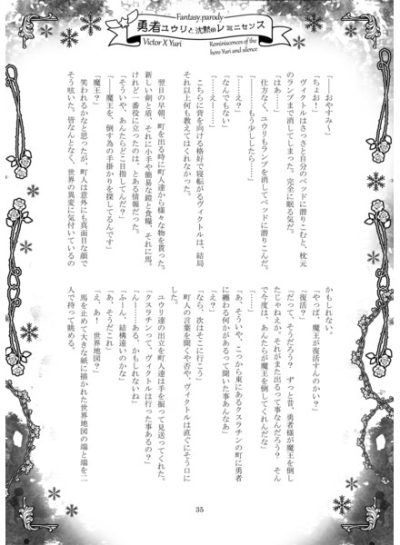 Fantasy.parody
勇者ユウリと沈黙のレミニセンス
Victor X Yuri
Reminiscences of the
hero Yuri and silence
「――おやすみ〜」
「ちょお！」
ヴィクトルはさっさと自分のベッドに潜りこむと、枕元
のランプまで消してしまった。完全に眠る気だ。
「はあ……」
仕方なく、ユウリもランプを消してベッドに潜りこんだ。
「……ユウリ」
「えっ？　もう少ししたら……」
「なんでもない」
「えっ」
こちらに背を向ける格好で寝転がるヴィクトルは、結局
それ以上何も教えてはくれなかった。
翌日の早朝、町を出る時に町人達から様々な物を貰った。
新しい剣と盾、それに小手や簡易な鎧と食糧、それに馬。
けれど一番役に立ったのは、とある情報だった。
「そういや、あんたらどこ目指してんだ？」
「――魔王を、倒す為の手掛かりを探してるんです」
「魔王？」
笑われるかなと思ったが、町人は意外にも真面目な顔で
そう呟いた。皆なんとなく、世界の異変に気付いているの
かもしれない。
「やっぱ、魔王が復活すんのかい？」
「復活？」
「だって、そうだろう？　ずっと昔、勇者様が魔王を倒し
たじゃねえか。それがまた出るって事なんだろう？　そん
で今度は、あんたらが魔王を倒してくれんだな」
「あ、そういや、こっから東にあるクスラチンの町に勇者
に纏わる何かがあるって聞いた事あんなあ」
「なら、次はそこに行こう」
町人の言葉を聞くや否や、ヴィクトルは直ぐにそう口に
した。
ユウリ達の出立を町人達は手を振って見送ってくれた。
「クスラチンって、ヴィクトルは行った事あるの？」
「ん――……ある、かもしれないね」
「ふーん、結構遠いのかな」
「あ、そうだこれ」
「え、あ！　世界地図？」
馬を止めて大きな紙に描かれた世界地図の端と端を二
人で持って眺める。
35